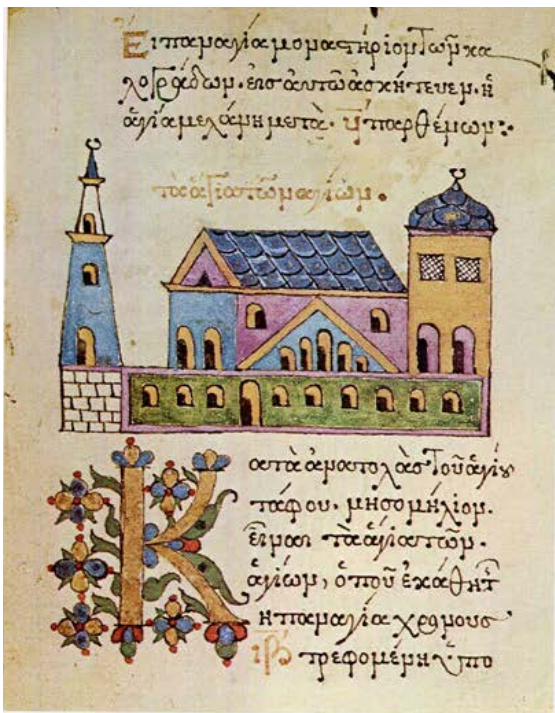 Εἱ παναγία μοναστήριον τῶν κα
λογράδων. εἰς αὐτῶ ἀσκήτευεν. ἡ
ἁγία μελάνη μετὰ. παρθένων:·
τὰ ἅγια τῶν ἁγίων.
Κατὰ ἀνατολὰς τοῦ ἁγίου
τάφου. μησομήλιον.
εἶναι τὰ ἅγια τῶν.
ἁγίων, ὁποῦ ἐκάθητ
ἡ παναγία χρόνους
ιβ τρεφομένη ὑπο